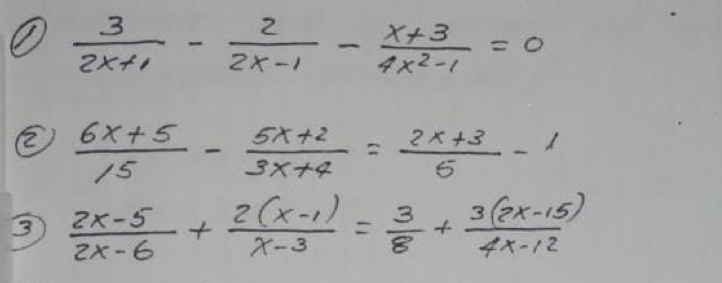 ① \frac{3}{2x+1} - \frac{2}{2x-1} - \frac{x+3}{4x^2-1} = 0
② \frac{6x+5}{15} - \frac{5x+2}{3x+4} = \frac{2x+3}{5} - 1
③ \frac{2x-5}{2x-6} + \frac{2(x-1)}{x-3} = \frac{3}{8} + \frac{3(2x-15)}{4x-12}